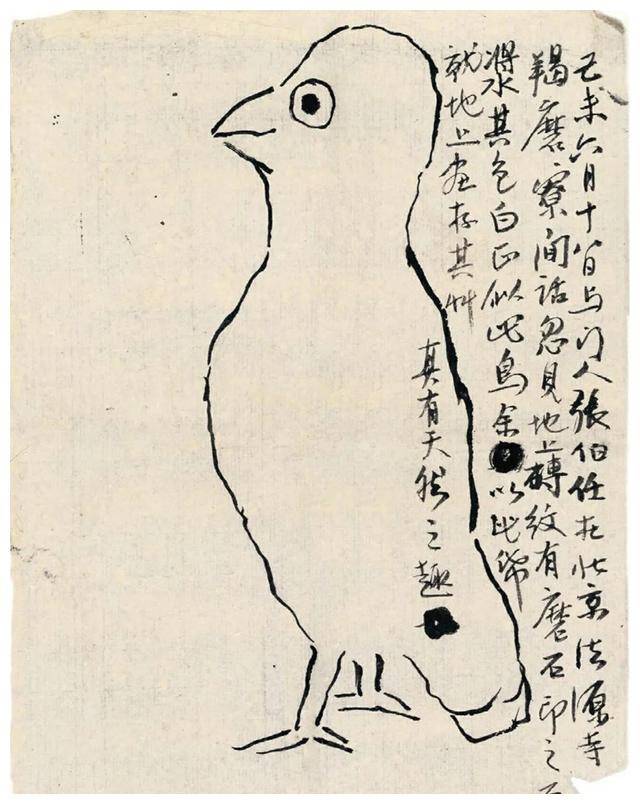 己未六月十八日与门人張伯任在北京法源寺
羯磨寮闲話忽見地上磚紋有磨石印之石
漿水其色白正似此鳥余以此纸
就地上画存其草
真有天然之趣